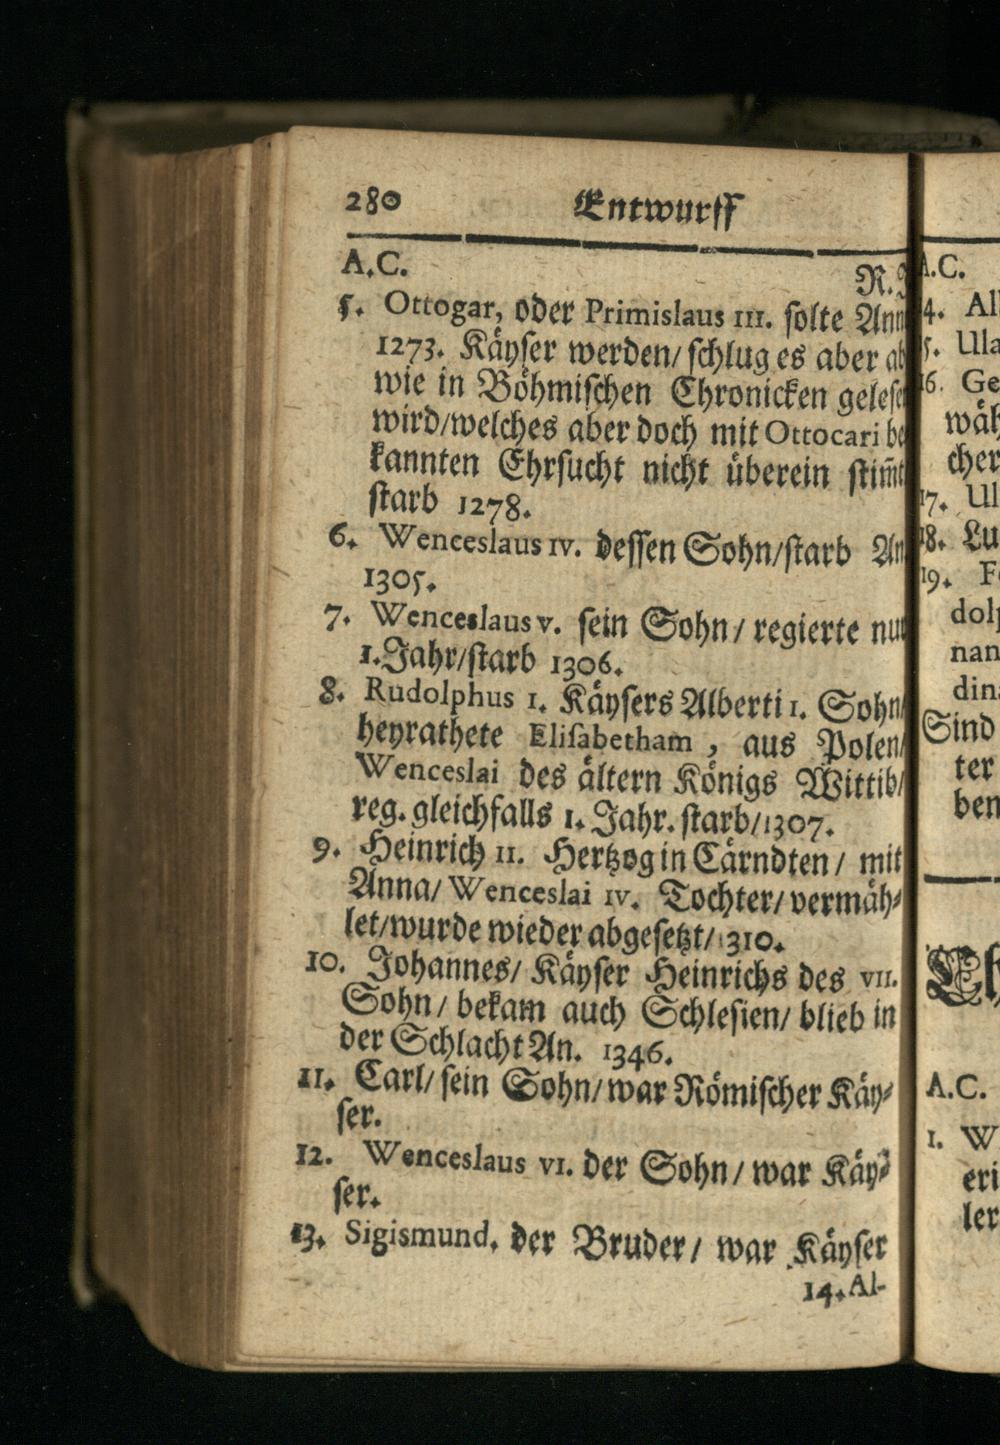 280 Entwurff
A.C. R.J
5. Ottogar, oder Primislaus III. solte Ann
1273. Käyser werden/ schlug es aber ab
wie in Böhmischen Chronicken gelese
wird/welches aber doch mit Ottocari be
kannten Ehrsucht nicht überein stim̃t
starb 1278.
6. Wenceslaus IV. dessen Sohn/starb An
1305.
7. Wenceslaus V. sein Sohn/ regierte nur
1. Jahr/starb 1306.
8. Rudolphus I. Käysers Alberti I. Sohn/
heyrathete Elisabetham, aus Polen/
Wenceslai des ältern Königs Wittib/
reg. gleichfalls 1. Jahr. starb/1307.
9. Heinrich II. Hertzog in Cärndten/ mit
Anna/ Wenceslai IV. Tochter/ vermäh-
let/wurde wieder abgesetzt/1310.
10. Johannes/ Käyser Heinrichs des VII.
Sohn/ bekam auch Schlesien/ blieb in
der Schlacht An. 1346.
11. Carl/ sein Sohn/ war Römischer Käy-
ser.
12. Wenceslaus VI. der Sohn/ war Käy-
ser.
13. Sigismund, der Bruder/ war Käyser
14. Al-
A.C.
4. Al
5. Ula
16. Ge
wäh
cher
17. Ul
18. Lu
19. Fe
dolp
nan
dina
Sind
ter
ben
Ch
A.C.
1. W
eri
ler